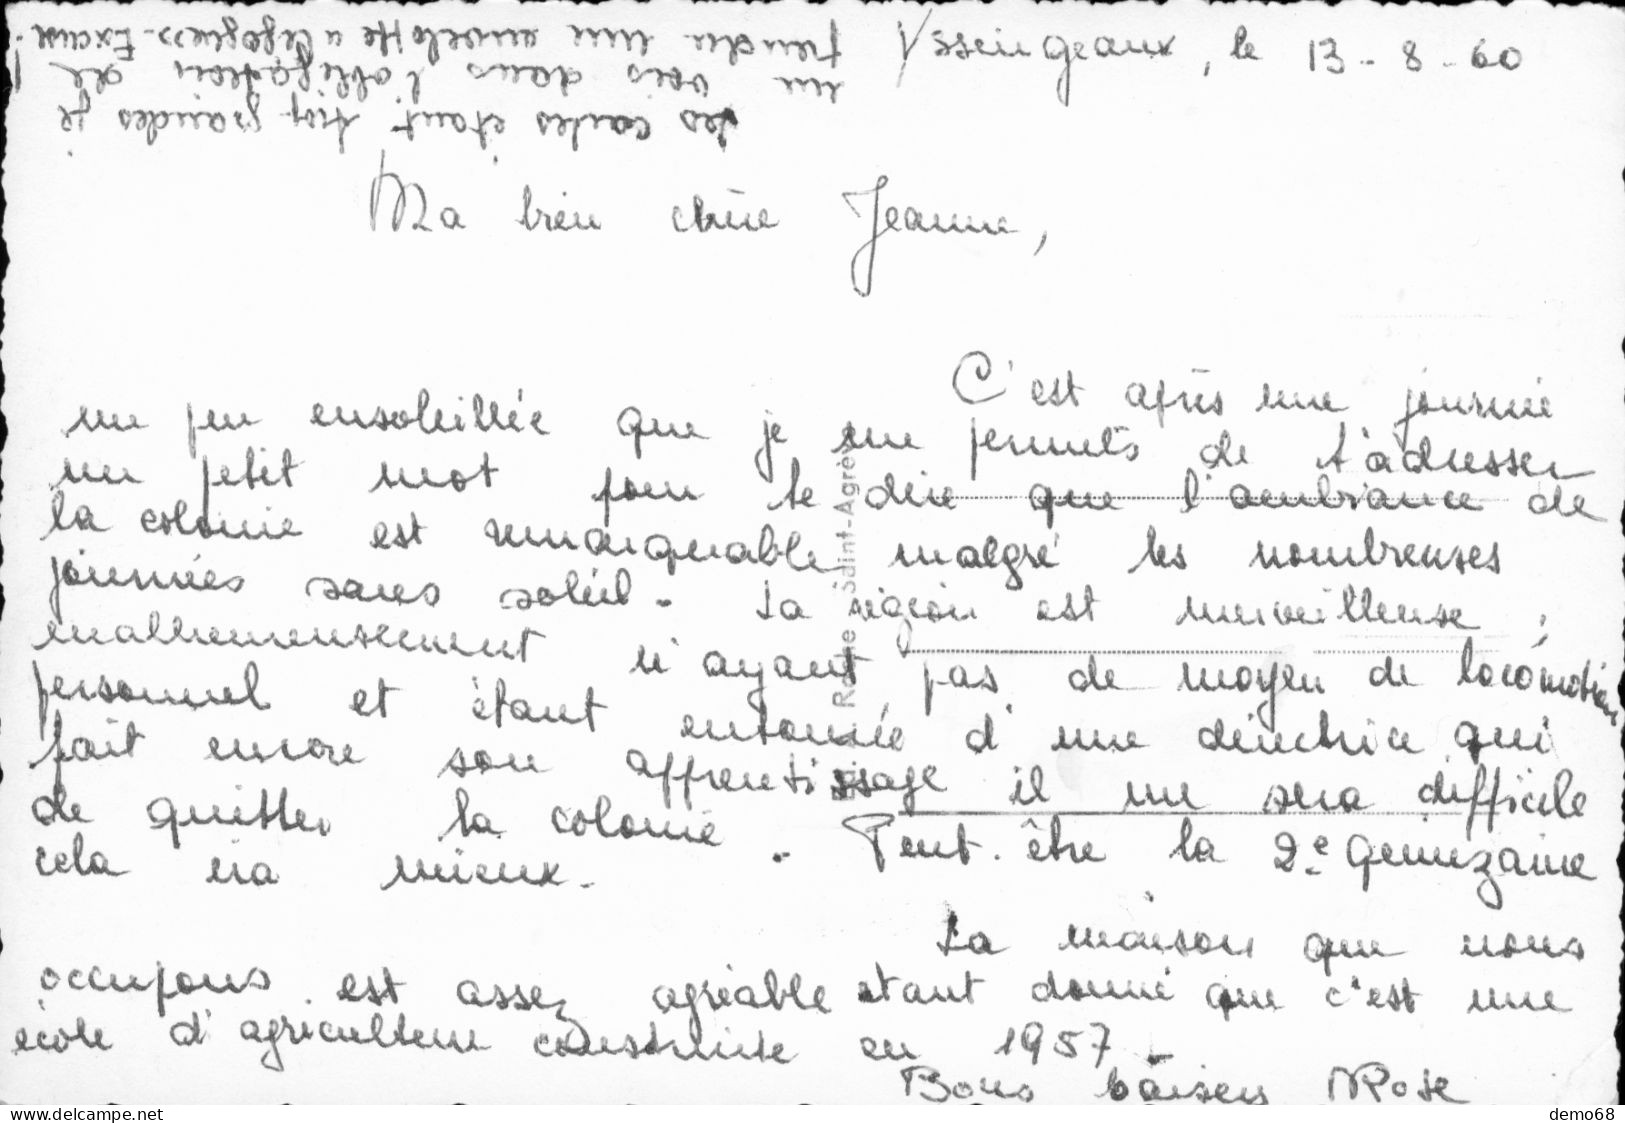 Yssengeaux, le 13-8-60
Ma bien chère Jeanne,
C'est après une journée
un peu ensoleillée que je me permets de t'adresser
un petit mot pour te dire que l'ambiance de
la colonie est remarquable malgré les nombreuses
journées sans soleil. La région est merveilleuse,
malheureusement n'ayant pas de moyen de locomotion
personnel et étant entourée d'une directrice qui
fait encore son apprentissage il me sera difficile
de quitter la colonie. Peut-être la 2e quinzaine
cela ira mieux.
La maison que nous
occupons est assez agréable étant donné que c'est une
école d'agriculture construite en 1957.
Bons baisers MRose
Les cartes étant trop grandes je
me vois dans l'obligation de
prendre une enveloppe Excuse
Saint-Agrève
demo68